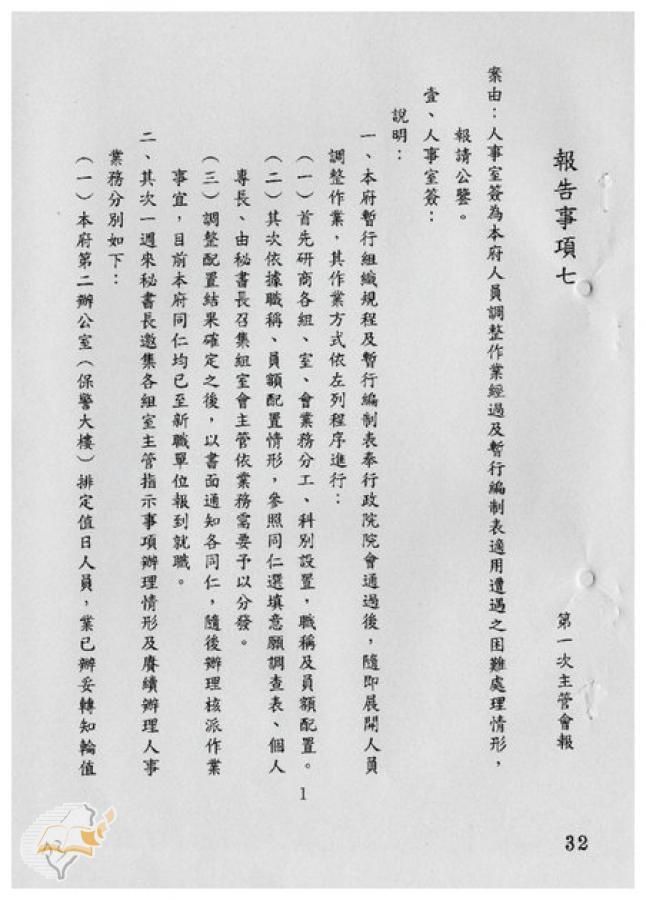 報告事項七
第一次主管會報
案由：人事室簽為本府人員調整作業經過及暫行編制表適用遭遇之困難處理情形，
報請公鑒。
壹、人事室簽：
說明：
一、本府暫行組織規程及暫行編制表奉行政院院會通過後，隨即展開人員
調整作業，其作業方式依左列程序進行：
（一）首先研商各組、室、會業務分工、科別設置，職稱及員額配置。
（二）其次依據職稱、員額配置情形，參照同仁選填意願調查表、個人
專長、由秘書長召集組室會主管依業務需要予以分發。
（三）調整配置結果確定之後，以書面通知各同仁，隨後辦理核派作業
事宜，目前本府同仁均已至新職單位報到就職。
二、其次一週來秘書長邀集各組室主管指示事項辦理情形及賡續辦理人事
業務分別如下：
（一）本府第二辦公室（保警大樓）排定值日人員，業已辦妥轉知輪值
1
32